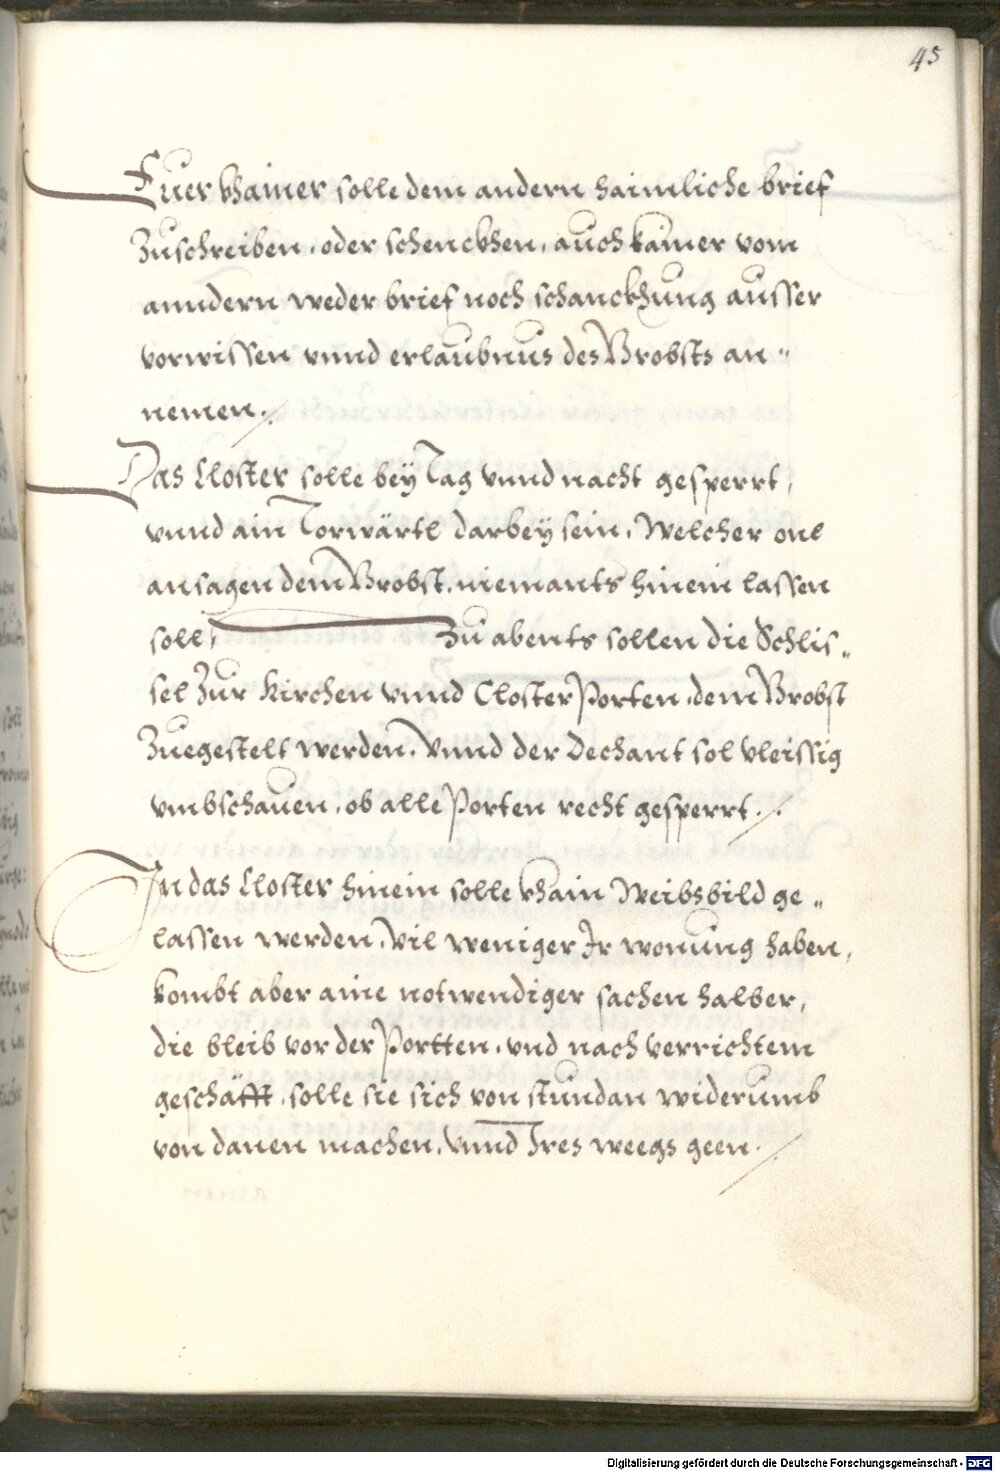 45
Euer khainer solle dem andern haimliche brief
Zuschreiben, oder schenckhen, auch kainer vom
anndern weder brief noch schanckhung ausser
vorwissen vnnd erlaubnus des Brobsts an"
nemen.
Das Closter solle bey Tag vnnd nacht gesperrt,
vnnd ain Torwärtl darbey sein, Welcher one
ansagen dem Brobst, niemants hinein lassen
soll, Zu abents sollen die Schlis"
sel Zur Kirchen vnnd Closter Porten, dem Brobst
Zuegestelt werden, Vnnd der Dechant sol vleissig
vmbschauen, ob alle Porten recht gesperrt.
In das Closter hinein solle khain Weibsbild ge"
lassen werden, Vil weniger Ir wonung haben,
kombt aber aine notwendiger sachen halber,
die bleib vor der Portten, vnd nach verrichtem
geschäfft, solle sie sich von stundan widerumb
von danen machen, Vnnd Ires weegs geen.
Digitalisierung gefördert durch die Deutsche Forschungsgemeinschaft - DFG